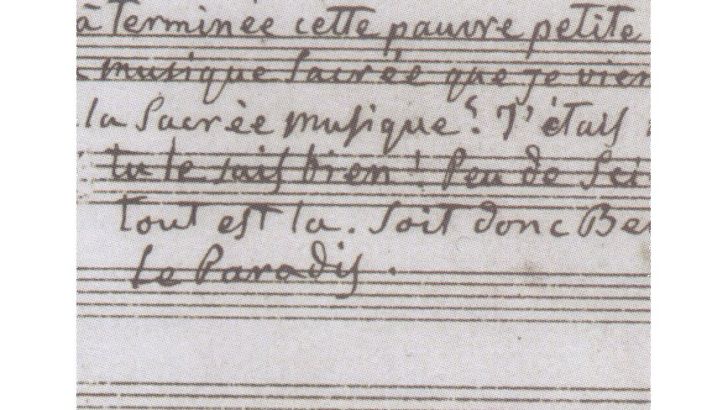 à terminée cette pauvre petite
musique Sacrée que je vien
la Sacrèe musique? J'étais
tu le sais bien! Peu de Sci
tout est la. Soit donc Be
Le Paradis.